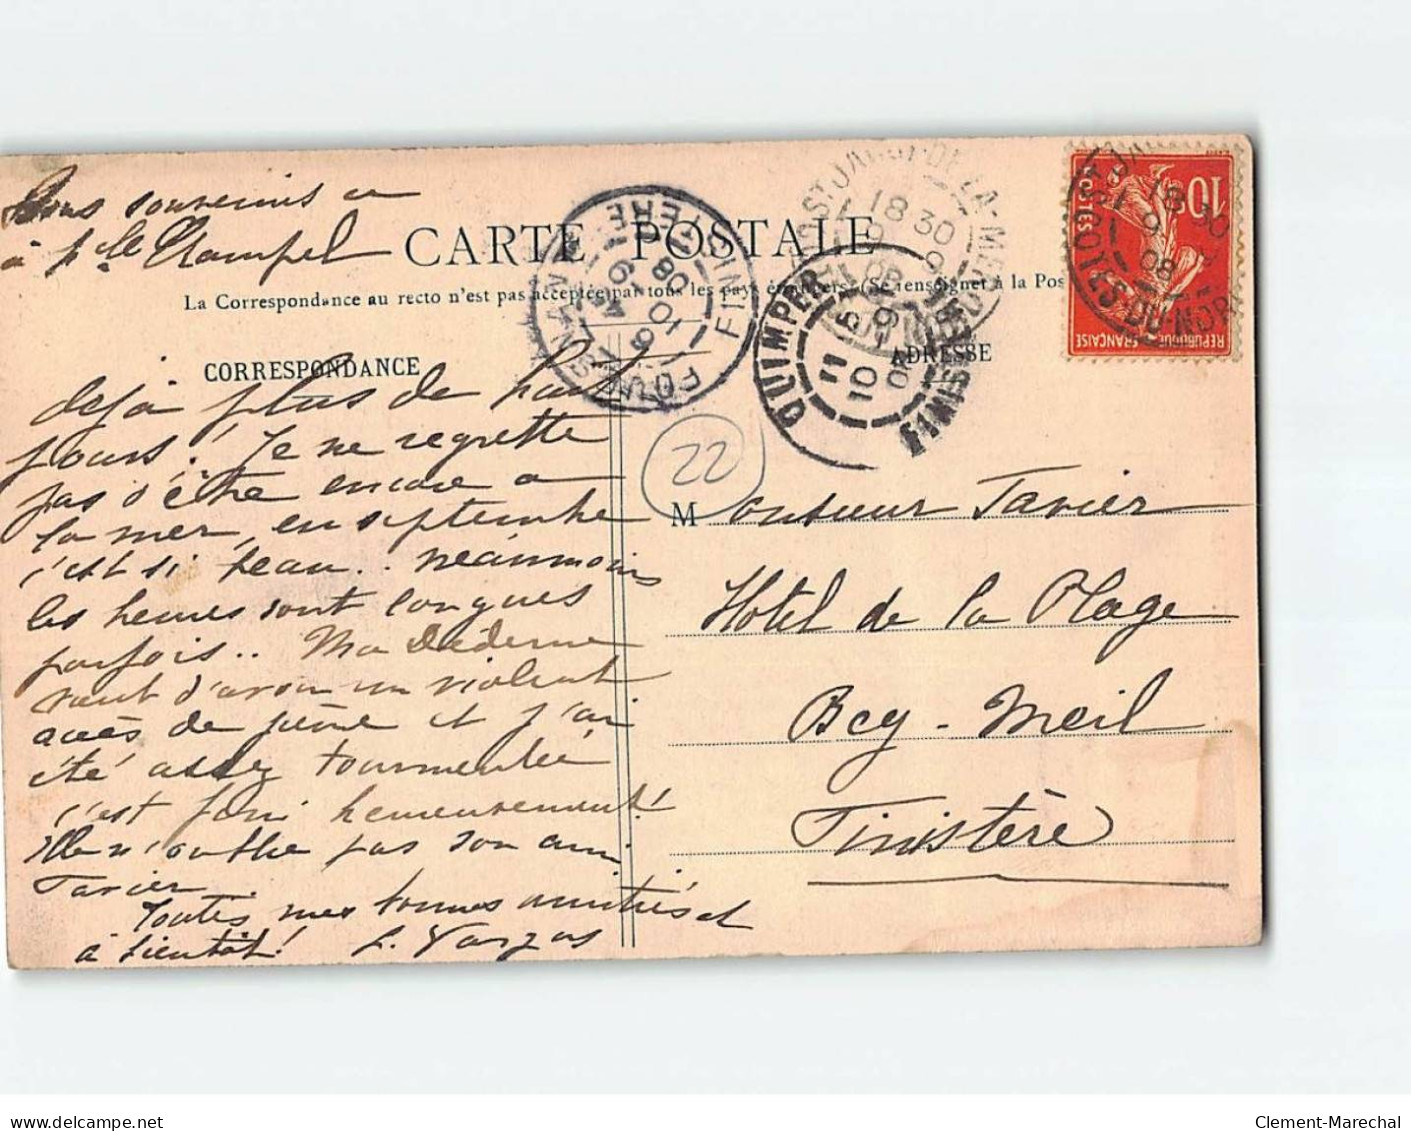 Bons souvenirs au
à
CARTE POSTALE
La Correspondance au recto n'est pas acceptée par tous les pays étrangers (Se renseigner à la Pos
CORRESPONDANCE
ADRESSE
déjà plus de huit
jours! Je ne regrette
pas d'être encore à
la mer, en septembre
c'est si beau.. néanmoins
les heures sont longues
parfois.. Ma
vient d'avoir un violent
accès de fièvre et j'ai
été assez tourmentée
c'est fini heureusement!
Elle n'oublie pas son ami
Tavier
Toutes mes bonnes amitiés et
à bientôt! L. Vargas
22
Monsieur Tavier
Hotel de la Plage
Beg-Meil
Finistère
FOUESNANT FINISTERE
10 9 08
QUIMPER FINISTERE
11 10 9 08
ST JACUT-DE-LA-MER COTES-DU-NORD
18 30
9 9 08
10
POSTES
REPUBLIQUE FRANÇAISE
ST JACUT
18 30
9 9 08
COTES-DU-NORD
www.delcampe.net
Clement-Marechal